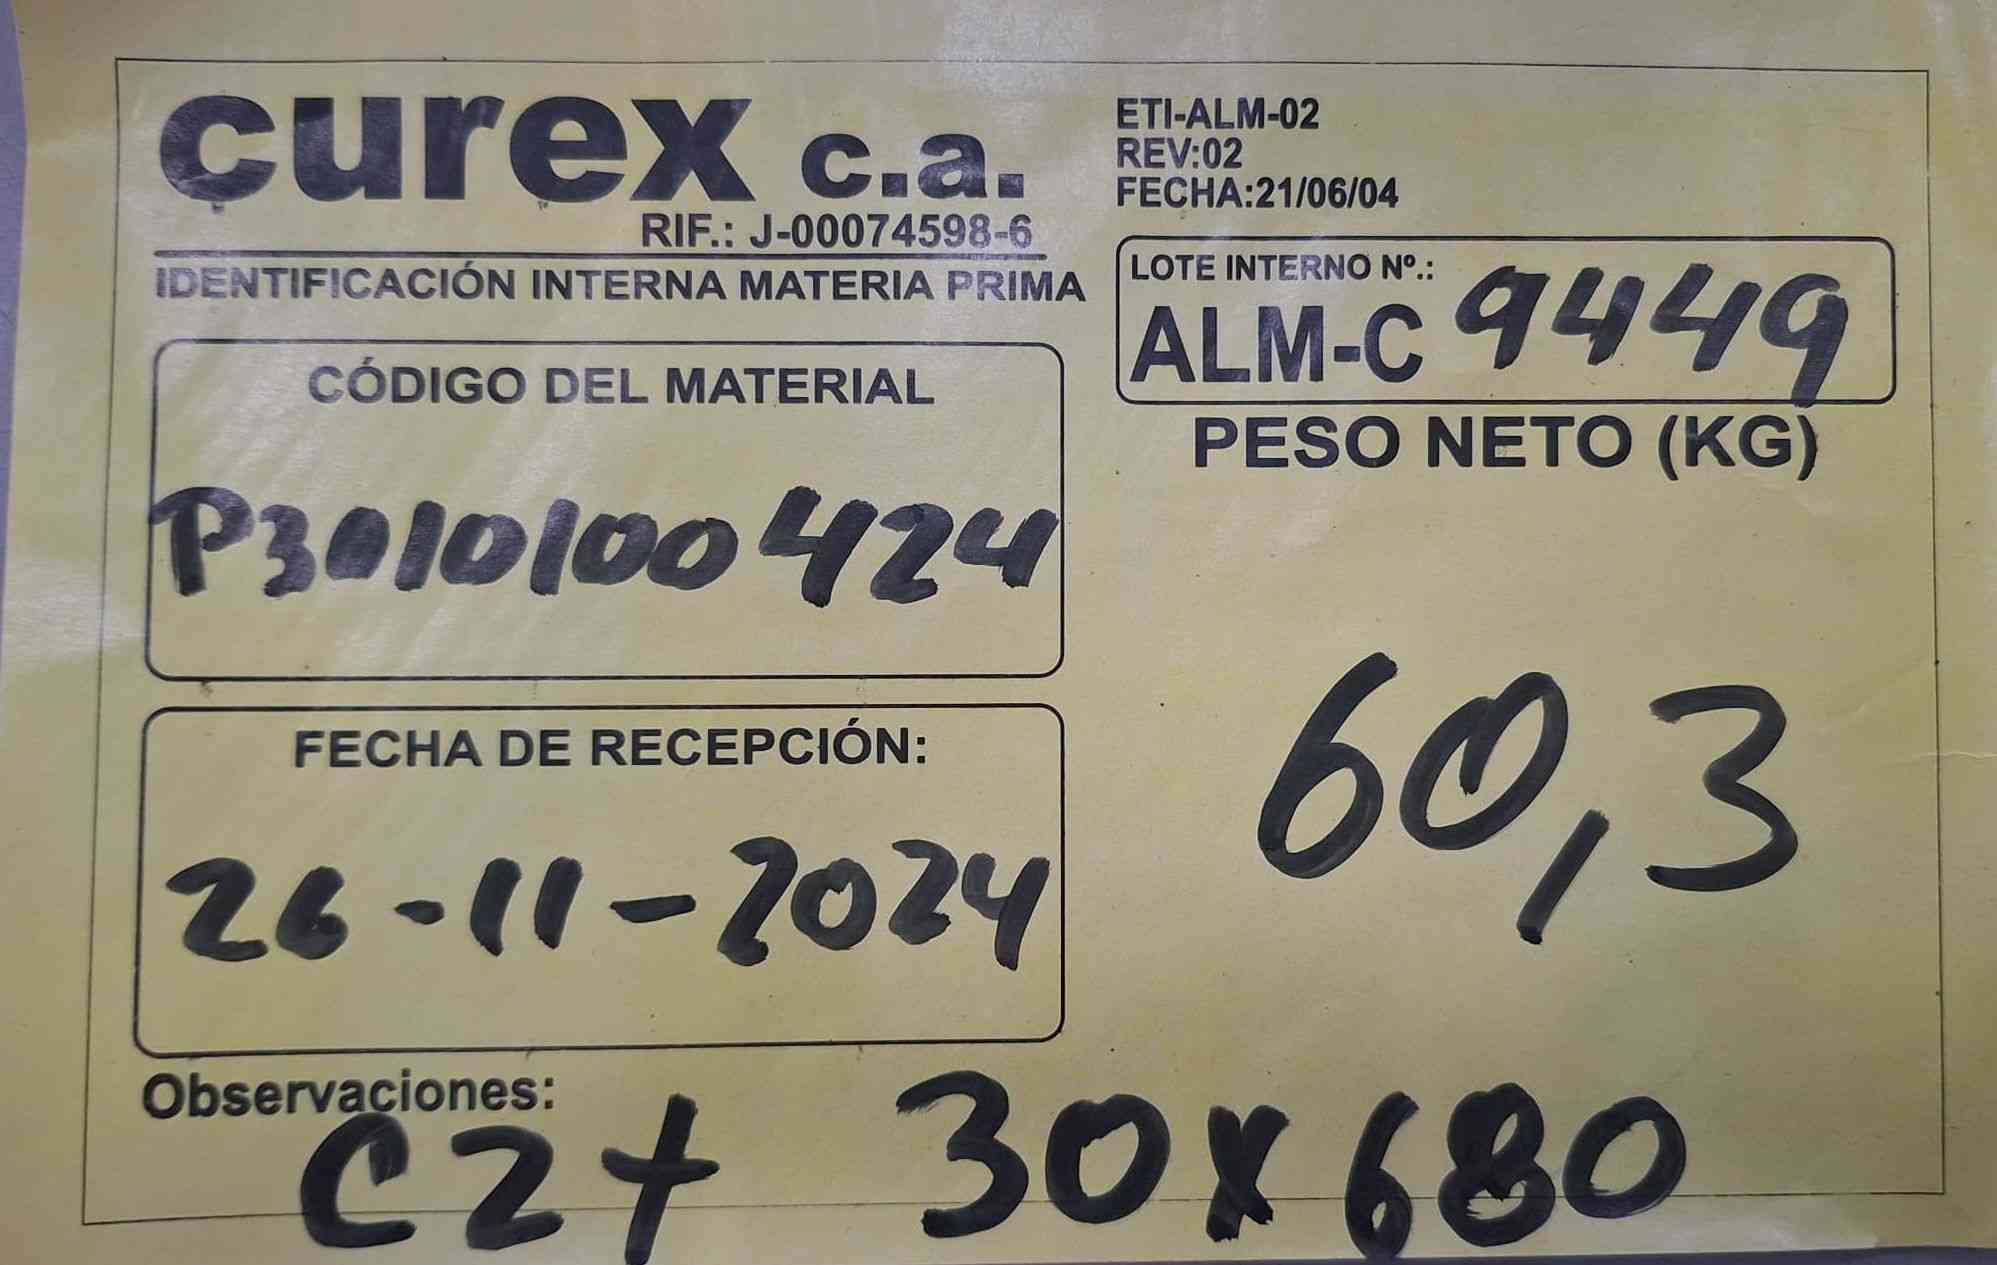 curex c.a.
RIF.: J-00074598-6
IDENTIFICACIÓN INTERNA MATERIA PRIMA
ETI-ALM-02
REV:02
FECHA:21/06/04
LOTE INTERNO Nº.:
ALM-C 9449
CÓDIGO DEL MATERIAL
P3010100424
PESO NETO (KG)
60,3
FECHA DE RECEPCIÓN:
26-11-2024
Observaciones:
C2+ 30x680